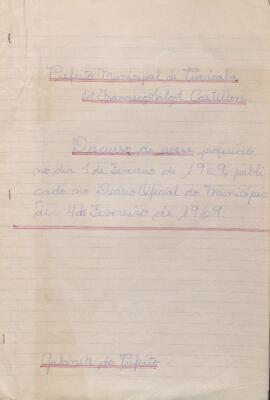 Prefeito Municipal de Piracicaba
Dr Francisco Salgot Castillon
Discurso de posse proferido
no dia 1 de Fevereiro de 1969, publi
cado no Diário Oficial do Município
de 4 de Fevereiro de 1969.
Gabinete do Prefeito